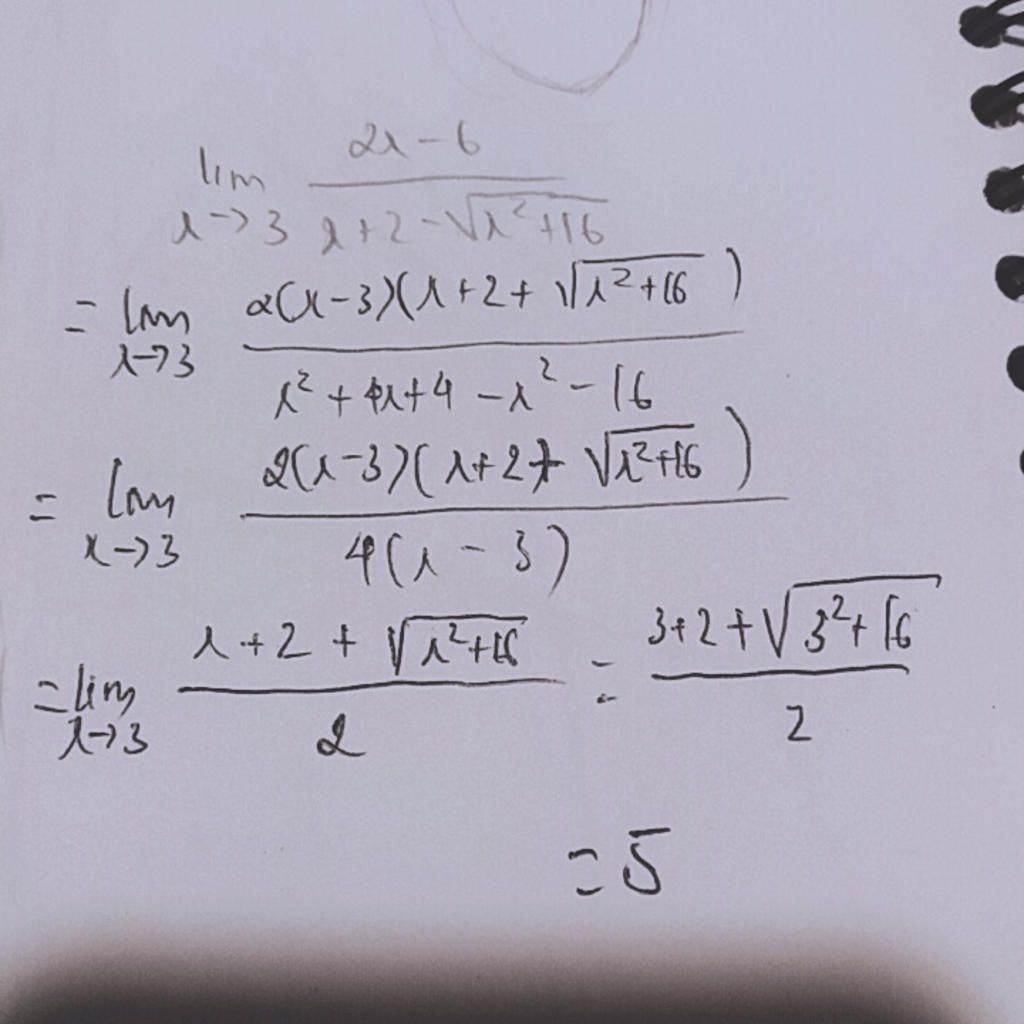 lim x→3 (2x-6)/(x+2-√(x²+16))
= lim x→3 (2(x-3)(x+2+√(x²+16)))/(x²+4x+4-x²-16)
= lim x→3 (2(x-3)(x+2+√(x²+16)))/(4(x-3))
= lim x→3 (x+2+√(x²+16))/2 = (3+2+√(3²+16))/2
= 5